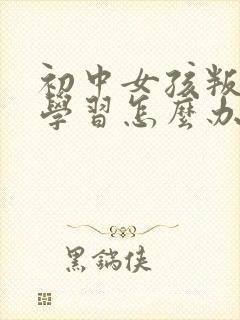 初中女孩叛
學習怎麼办
黑鍋俠